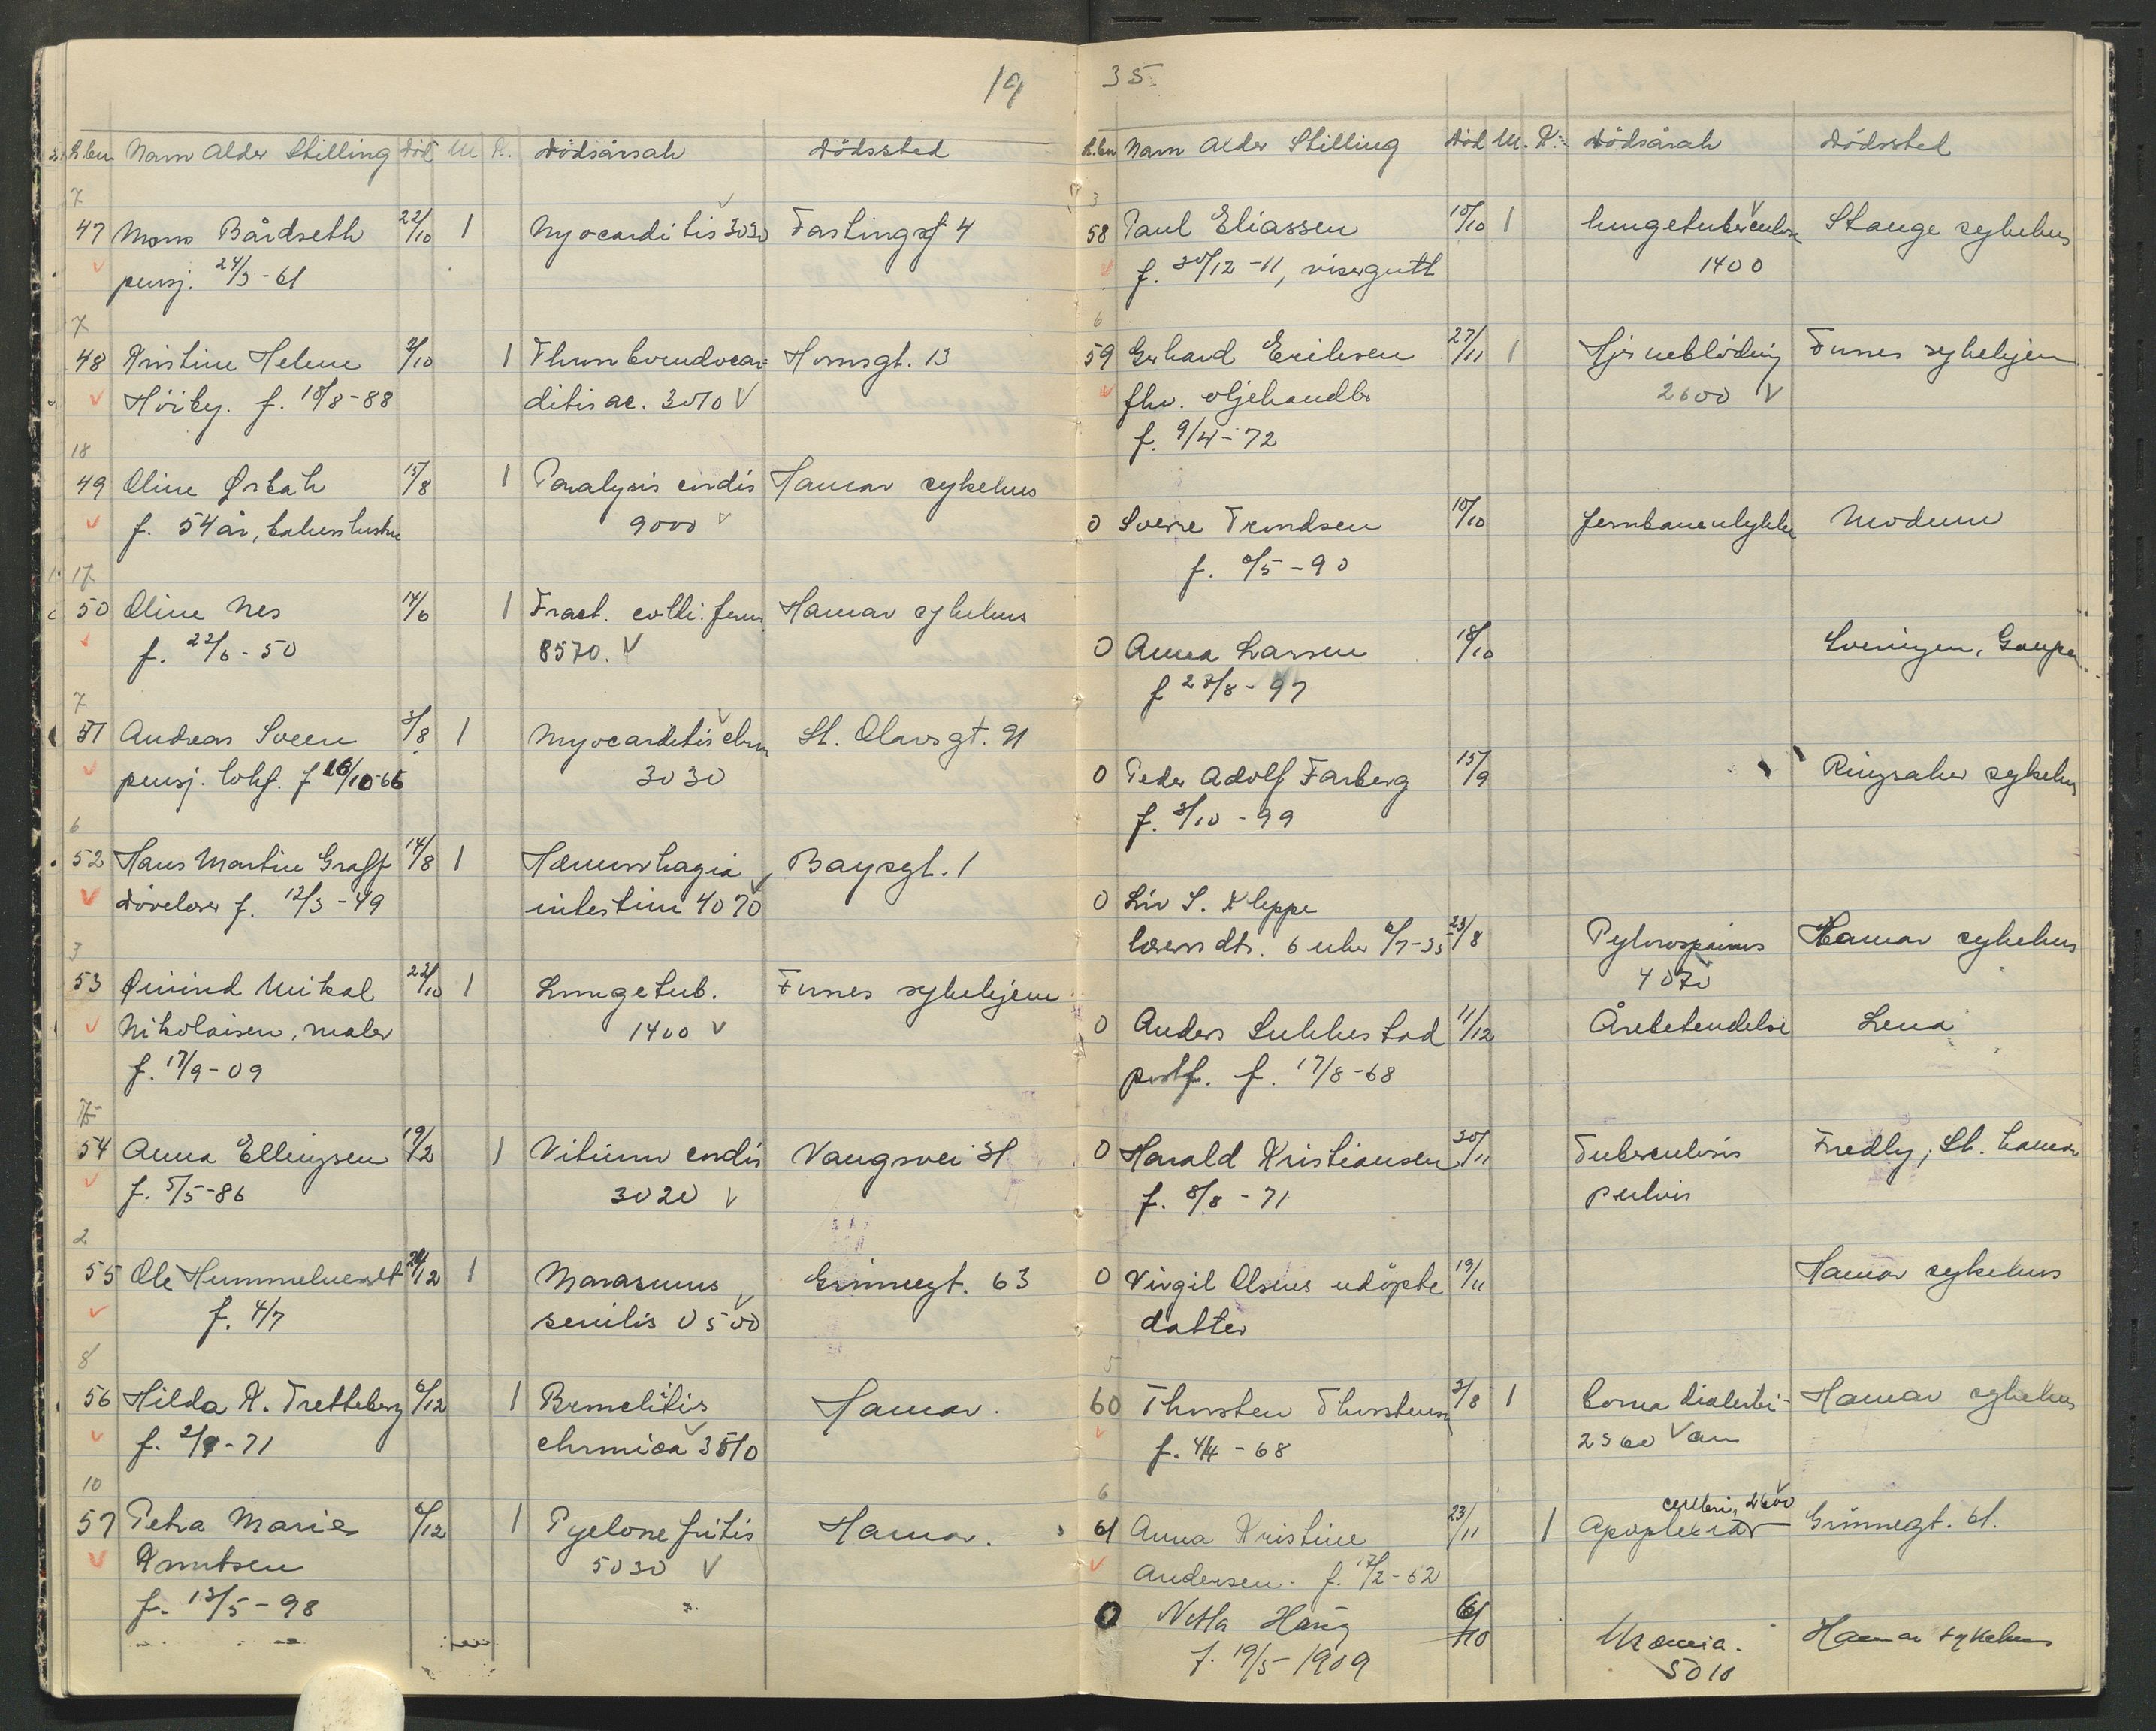 19
L.bn Navn Alder Stilling Död M K. Dödsårsak Dödssted
7
47 Mons Bårdseth 22/10 1 Myocarditis 3030 Fastingsgt 4
pensj. 24/3-61
7
48 Kristine Helene 2/10 1 Thromboendocar- Hornsgt. 13
Höiby. f. 18/8-88 ditis ac. 3070
18
49 Oline Ørbak 15/8 1 Paralysis cordis Hamar sykehus
f. 54 år, 9000
17
50 Oline Nes 14/6 1 Fract. colli. fem. Hamar sykehus
f. 22/6-50 8570.
7
51 Andreas Sveen 3/8 1 Myocarditis chron St. Olavsgt. 91
pensj. lokf. f 16/10-66 3030
6
52 Hans Martin Graff 14/8 1 Hæmorrhagia Baysgt. 1
dövelærer f. 12/3-49 intestini 4070
3
53 Øivind Mikal 22/10 1 Lungetub. Furnes sykehjem
Nikolaisen, maler 1400
f. 17/9-09
7
54 Anna Ellingsen 19/2 1 Vitium cordis Vangsvei 31
f. 5/5-86 3020
2
55 Ole Hummelvoldt /12 1 Marasmus Grönnegt. 63
f. 4/7 senilis 0500
8
56 Hilda K. Tretteberg 6/12 1 Bronchitis Hamar.
f. 2/9-71 chronica 3510
10
57 Petra Marie 6/12 1 Pyelonefritis Hamar.
Knutsen 5030
f. 13/5-98
35
L.bn Navn Alder Stilling Död M. K. Dödsårsak Dödssted
3
58 Paul Eliassen 10/10 1 lungetuberculose Stange sykehus
f. 30/12-11, visergutt 1400
6
59 Gerhard Eriksen 27/11 1 Hjerneblödning Furnes sykehjem
fhv. oljehandler 2600
f. 9/4-72
0 Sverre Trondsen 10/10 Jernbaneulykke Modum
f. 8/5-90
0 Anna Larsen 18/10 Sveningen, Gaupen
f 27/8-97
0 Peder Adolf Farberg 15/9 Ringsaker sykehus
f. 3/10-99
0 Liv S. Kleppe
lærers dtr. 6 uker 6/7-35 23/8 Pylorospasmus Hamar sykehus
4070
0 Anders Sukkestad 11/12 Årebetendelse Lena
postf. f. 17/8-68
0 Harald Kristiansen 30/11 Tuberculosis Fredly, St. Hamar
f. 8/8-71 pulvis
0 Virgil Olsens udöpte 19/11 Hamar sykehus
datter
5
60 Thorsten Thorstensen 3/8 1 Coma diabeti- Hamar sykehus
f. 4/4-68 2360 cum
6
61 Anna Kristine 23/11 1 Apoplexia cerebri, 2600 Grönnegt. 61.
Andersen. f. 17/2-62
0 Netta Haug 6/10 Uræmia. Hamar sykehus
f. 19/5-1909 5010